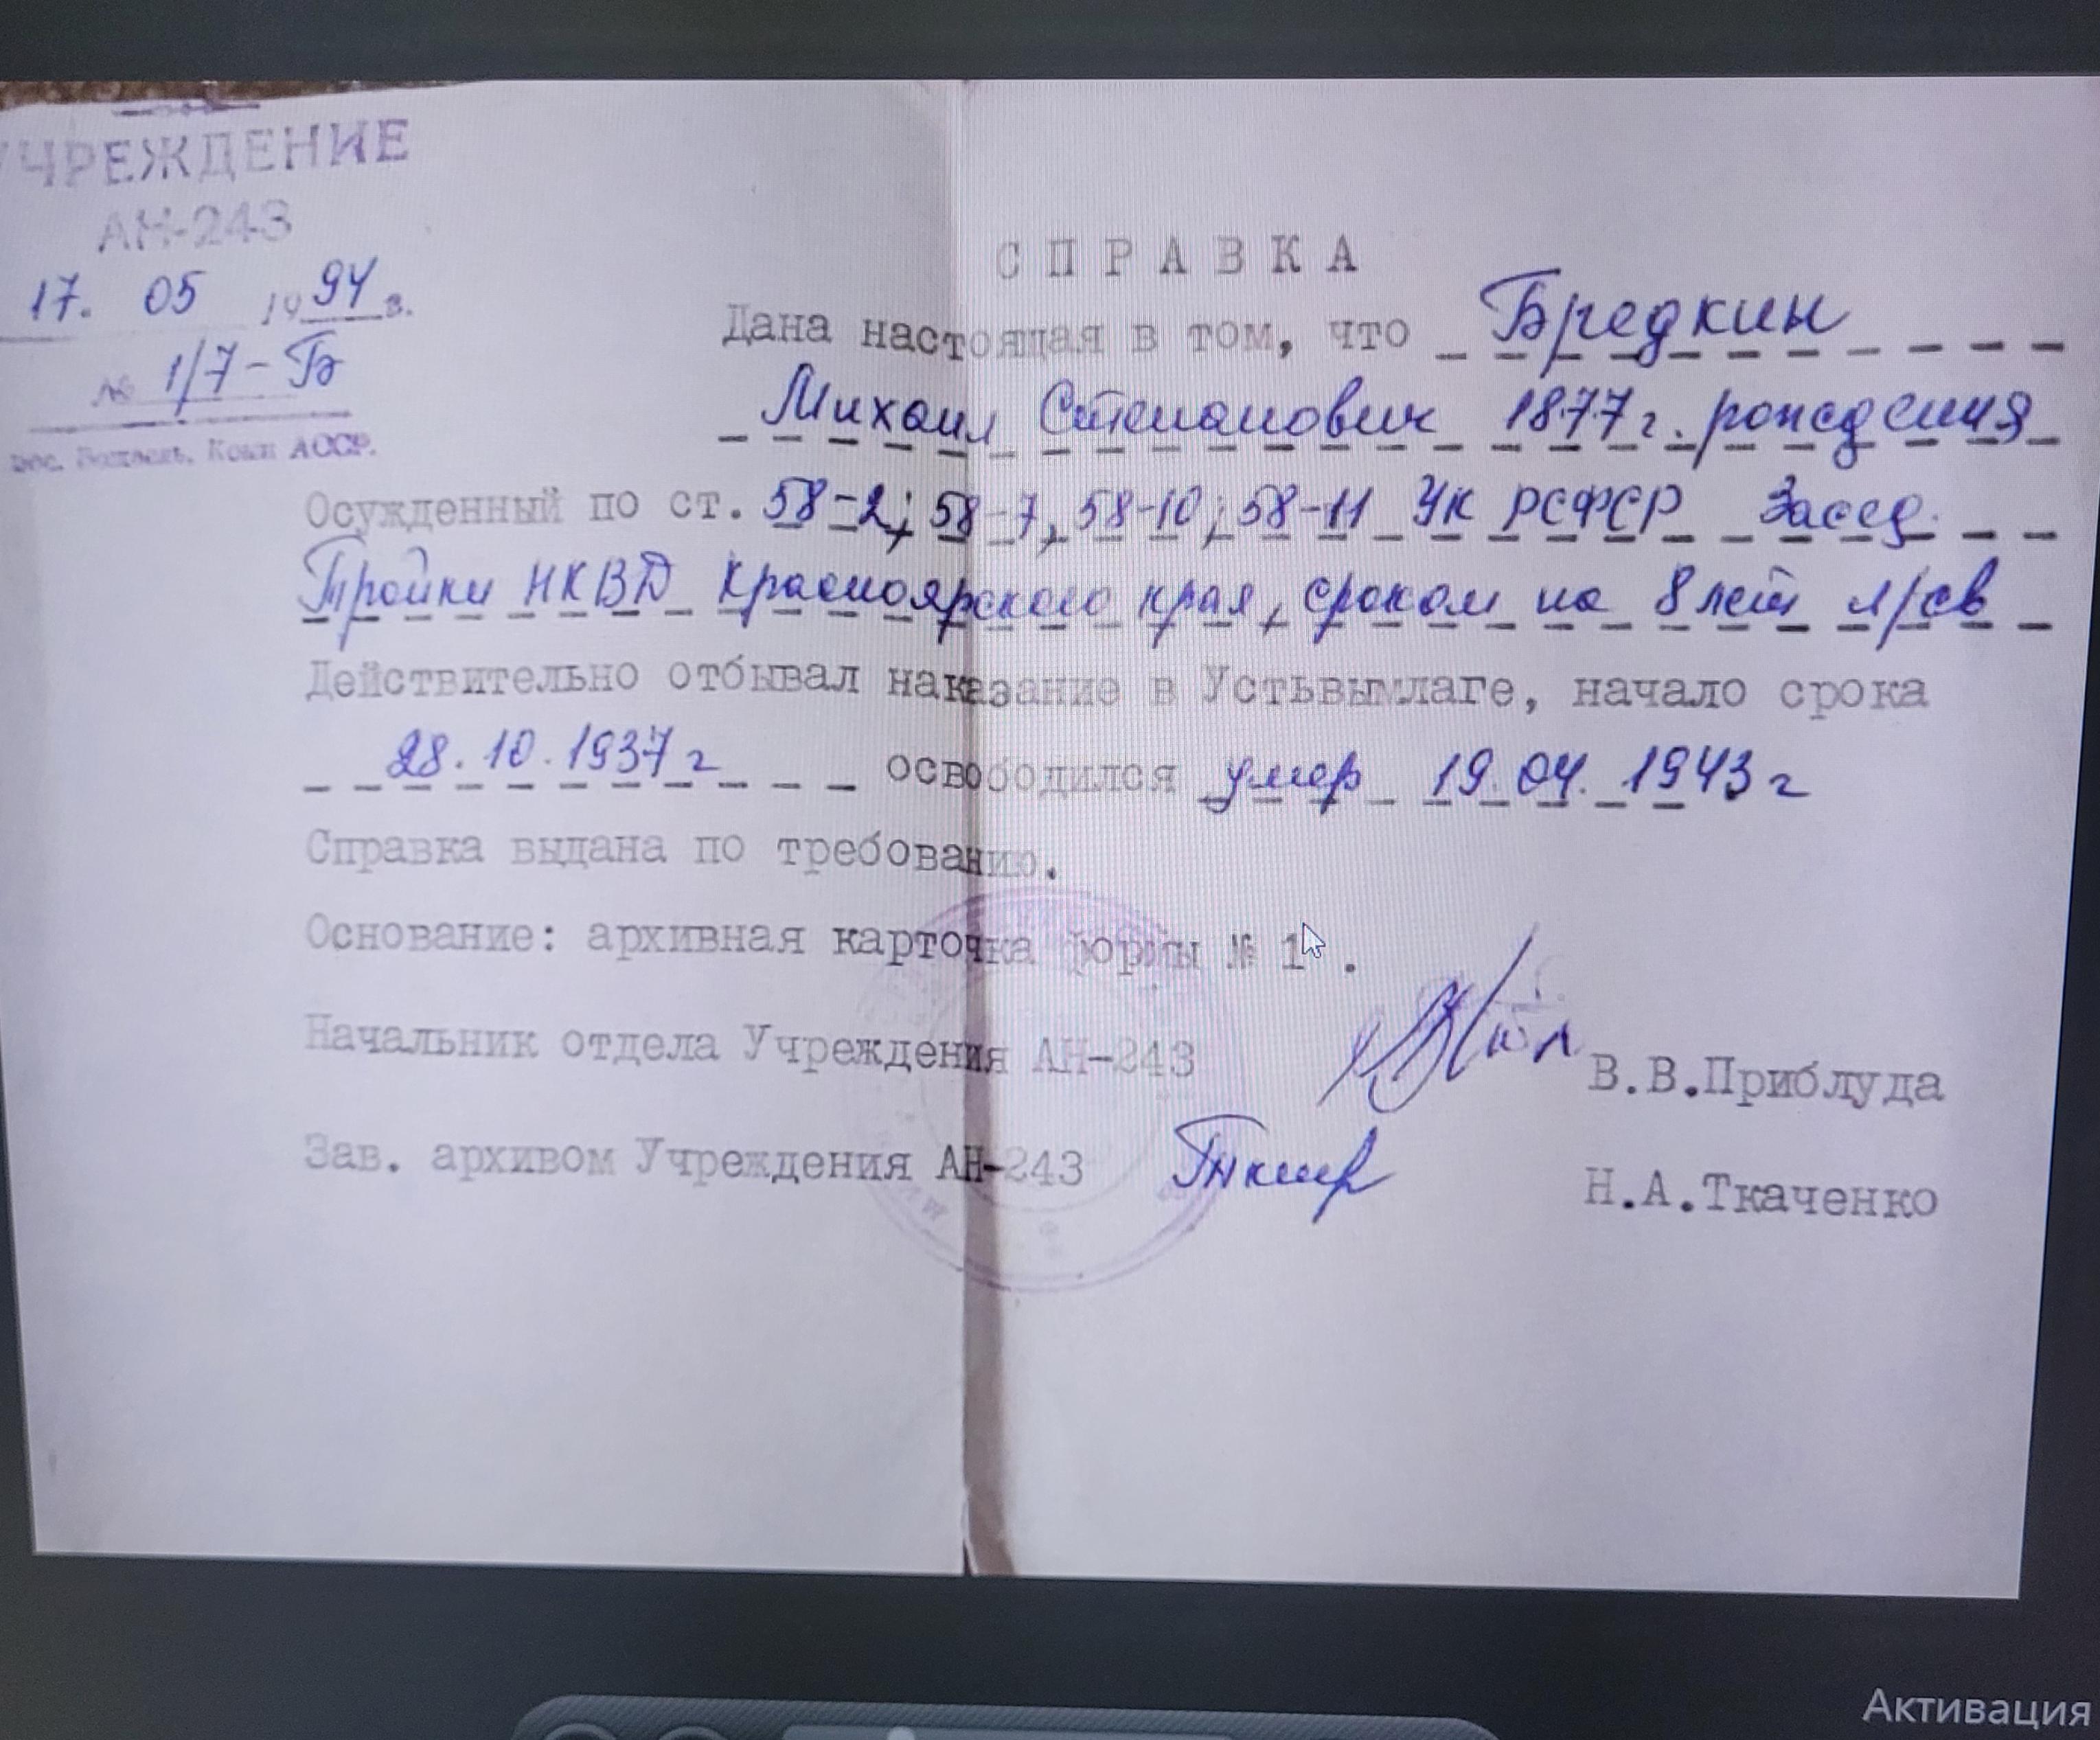 УЧРЕЖДЕНИЕ
АН-243
17. 05 1994 г.
№ 1/7-Б
АССР.
СПРАВКА
Дана настоящая в том, что Бредкин
Михаил Степанович 1877 г. рождения
Осужденный по ст. 58-2; 58-7, 58-10; 58-11 УК РСФСР Засед.
Тройки НКВД Красноярского края, сроком на 8 лет л/св
Действительно отбывал наказание в Устьвымлаге, начало срока
28.10.1937 г освободился умер 19.04.1943 г
Справка выдана по требованию.
Основание: архивная карточка формы № 1 .
Начальник отдела Учреждения АН-243 В.В.Приблуда
Зав. архивом Учреждения АН-243 Н.А.Ткаченко
Активация